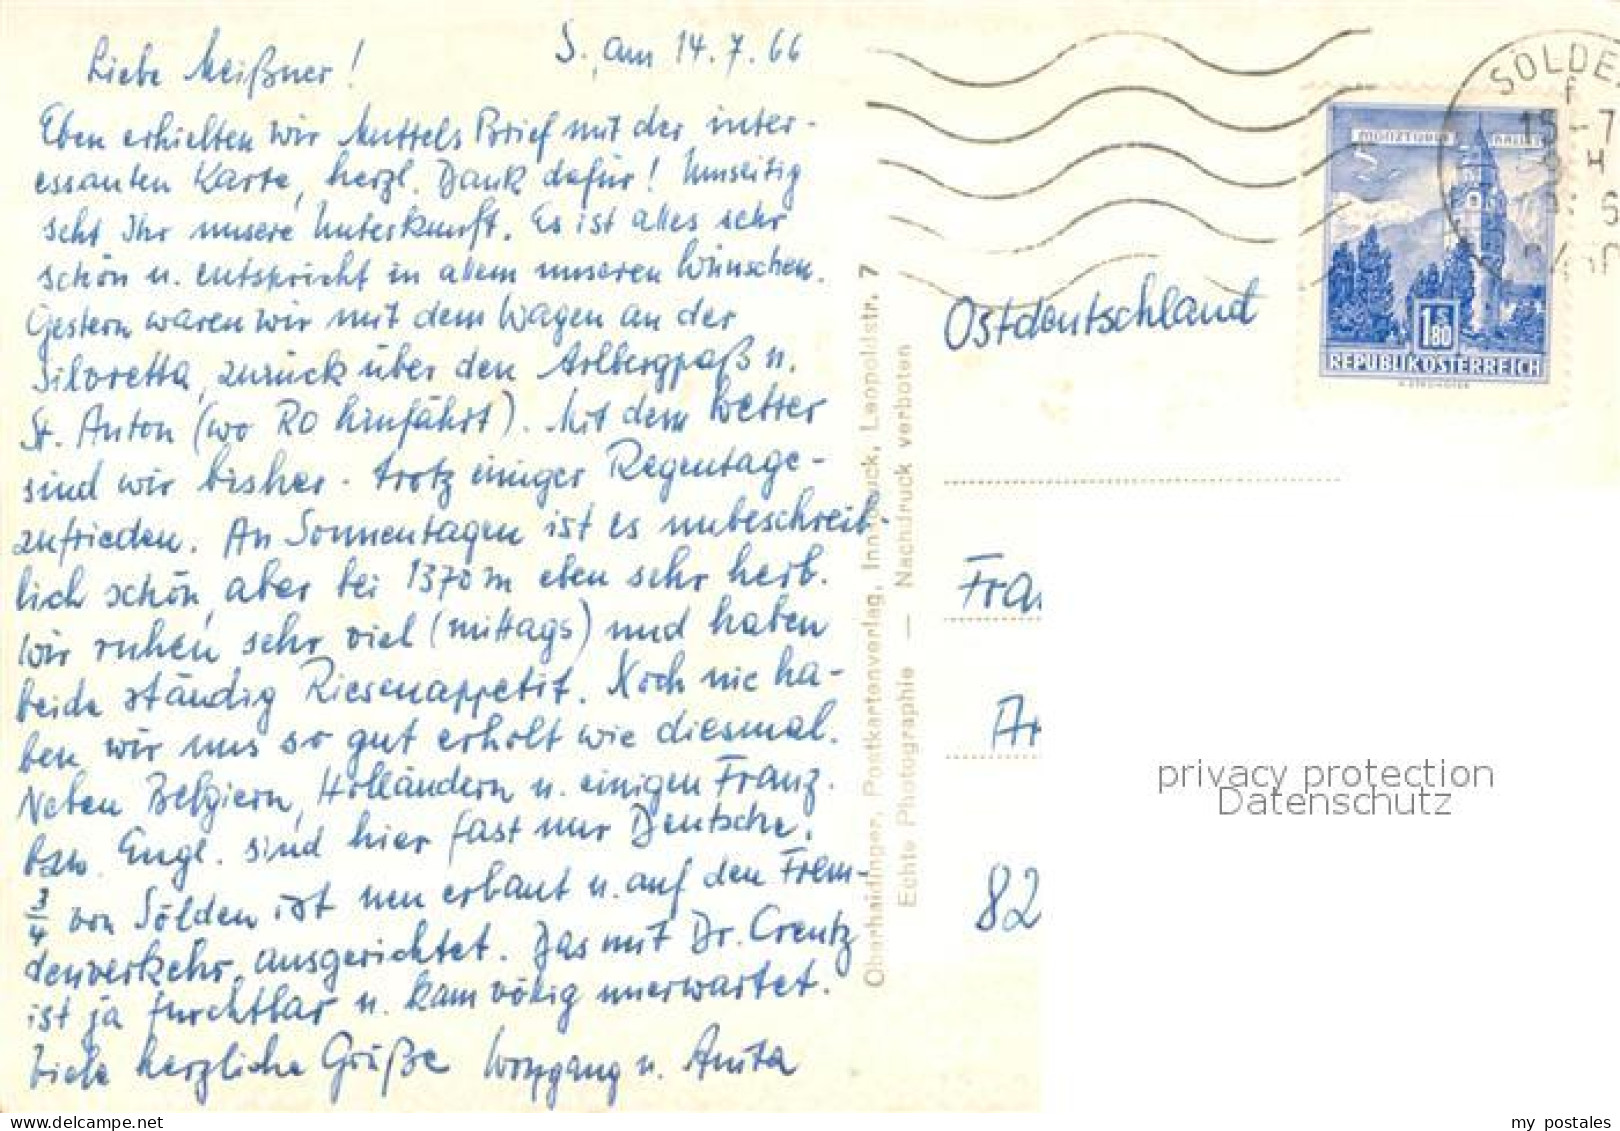 S., am 14.7.66
Liebe Meißner!
Eben erhielten wir Muttels Brief mit der inter-
essanten Karte, herzl. Dank dafür! Umseitig
seht Ihr unsere Unterkunft. Es ist alles sehr
schön u. entspricht in allem unseren Wünschen.
Gestern waren wir mit dem Wagen an der
Silvretta, zurück über den Arlbergpaß u.
St. Anton (wo RO hinfährt). Mit dem Wetter
sind wir bisher - trotz einiger Regentage -
zufrieden. An Sonnentagen ist es unbeschreib-
lich schön, aber bei 1370 m eben sehr herb.
Wir ruhen sehr viel (mittags) und haben
beide ständig Riesenappetit. Noch nie ha-
ben wir uns so gut erholt wie diesmal.
Neben Belgiern, Holländern u. einigen Franz.
bzw. Engl. sind hier fast nur Deutsche.
3/4 von Sölden ist neu erbaut u. auf den Frem-
denverkehr ausgerichtet. Das mit Dr. Creutz
ist ja furchtbar u. kam völlig unerwartet.
Viele herzliche Grüße Wolfgang u. Anita
Oberhaidinger, Postkartenverlag, Innsbruck, Leopoldstr. 7
Echte Photographie — Nachdruck verboten
SÖLDE
f
15-7
MÜNZTURM
1 S 80
REPUBLIK ÖSTERREICH
Ostdeutschland
Fra
Ar
82
privacy protection
Datenschutz
my postales